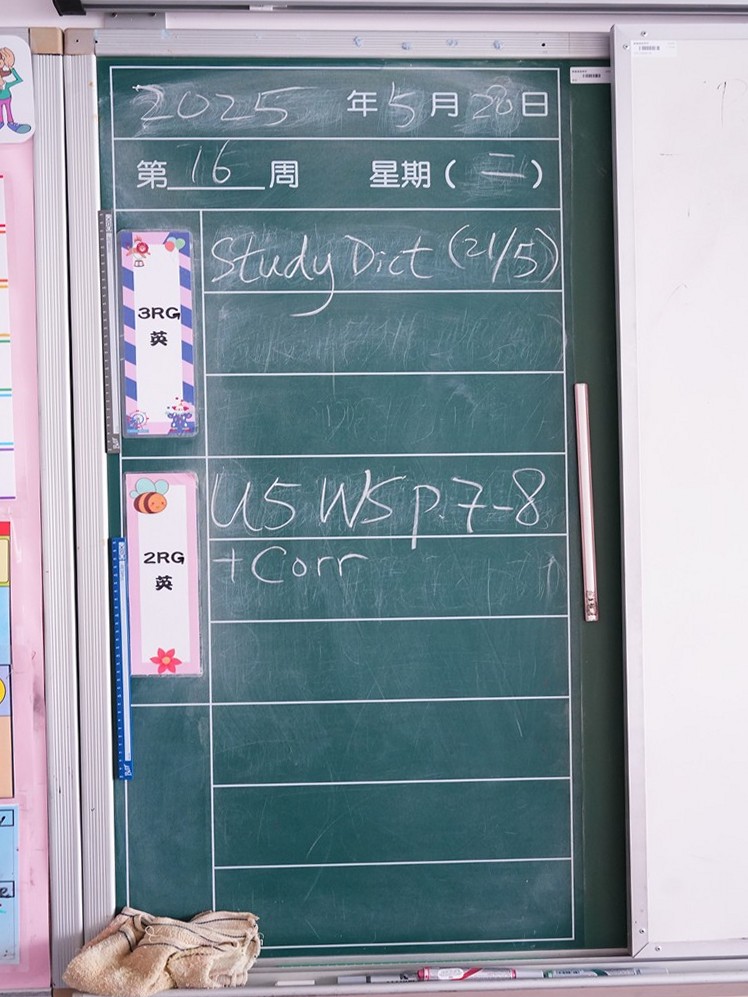 2025 年 5 月 20 日
第 16 周 星期 ( 二 )
3RG
英
Study Dict (21/5)
2RG
英
U5 WS p.7-8
+ Corr